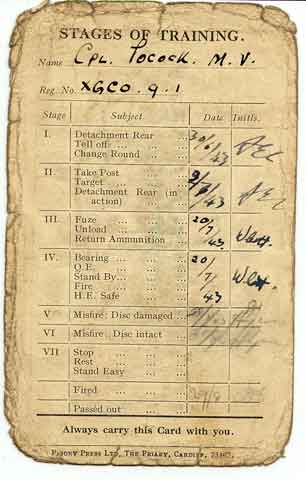 STAGES OF TRAINING.
Name CPL. POCOCK. M. V.
Reg. No. XGCO. 9. 1
Stage Subject Date Initls.
I. Detachment Rear ... 30/
Tell off ... ... ... 6/
Change Round .. ... 43
II. Take Post ... ...
Target ... ... ...
Detachment Rear (in
action) ... ... 43
III. Fuze ... ... ... 20/
Unload ... ... ... 7
Return Ammunition ... 43
IV. Bearing ... ... ... 20/
Q.E. ... ... ...
Stand By... ... ... 7/
Fire ... ... ...
H.E. Safe ... ... 43
V Misfire: Disc damaged ...
VI Misfire: Disc intact ...
VII Stop ... ... ...
Rest ... ... ...
Stand Easy ... ...
Fired ... ... ...
Passed out ... ...
Always carry this Card with you.
PRIORY PRESS LTD, THE FRIARY, CARDIFF,